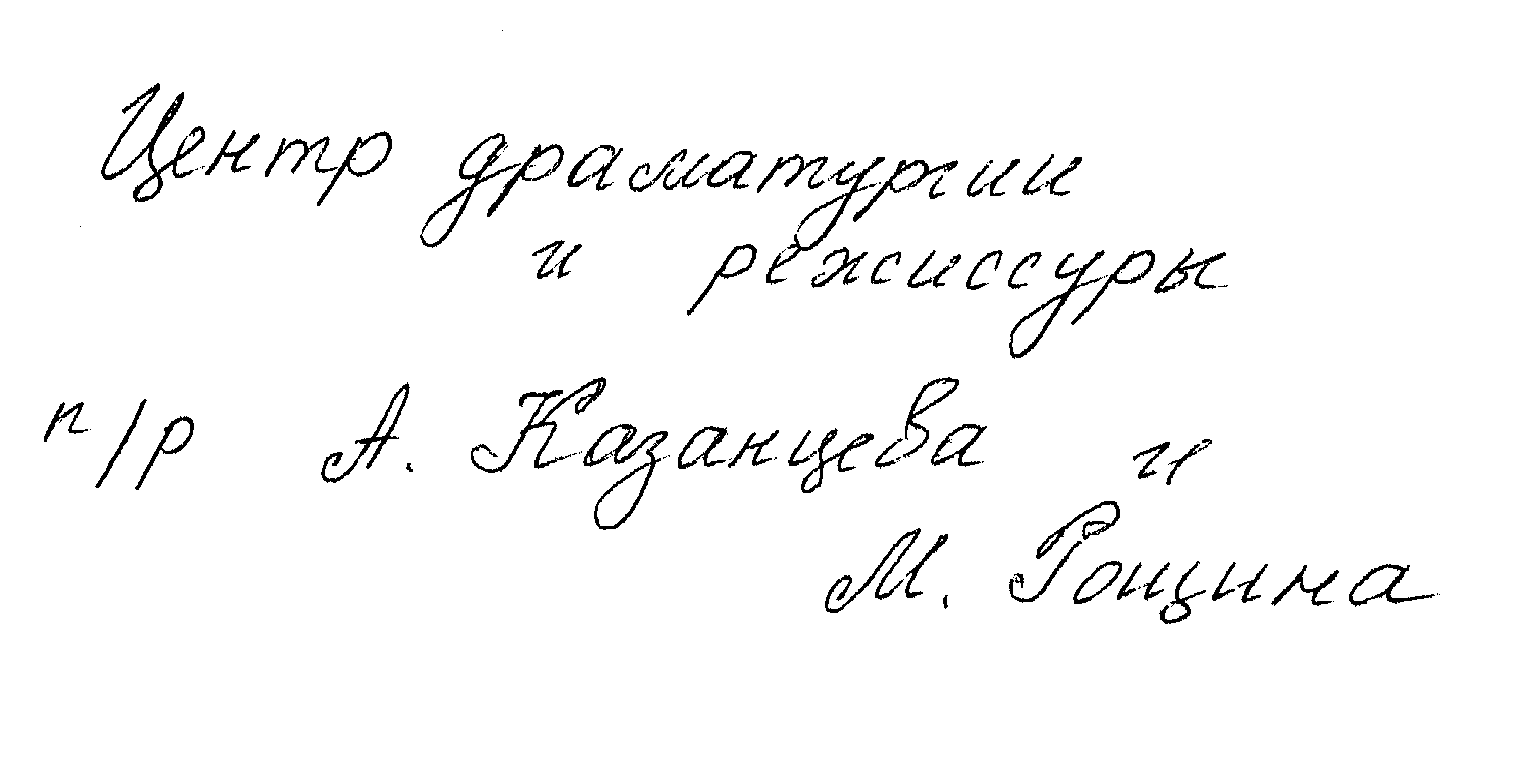 Центр драматургии
и режиссуры
п/р А. Казанцева и
М. Рощина